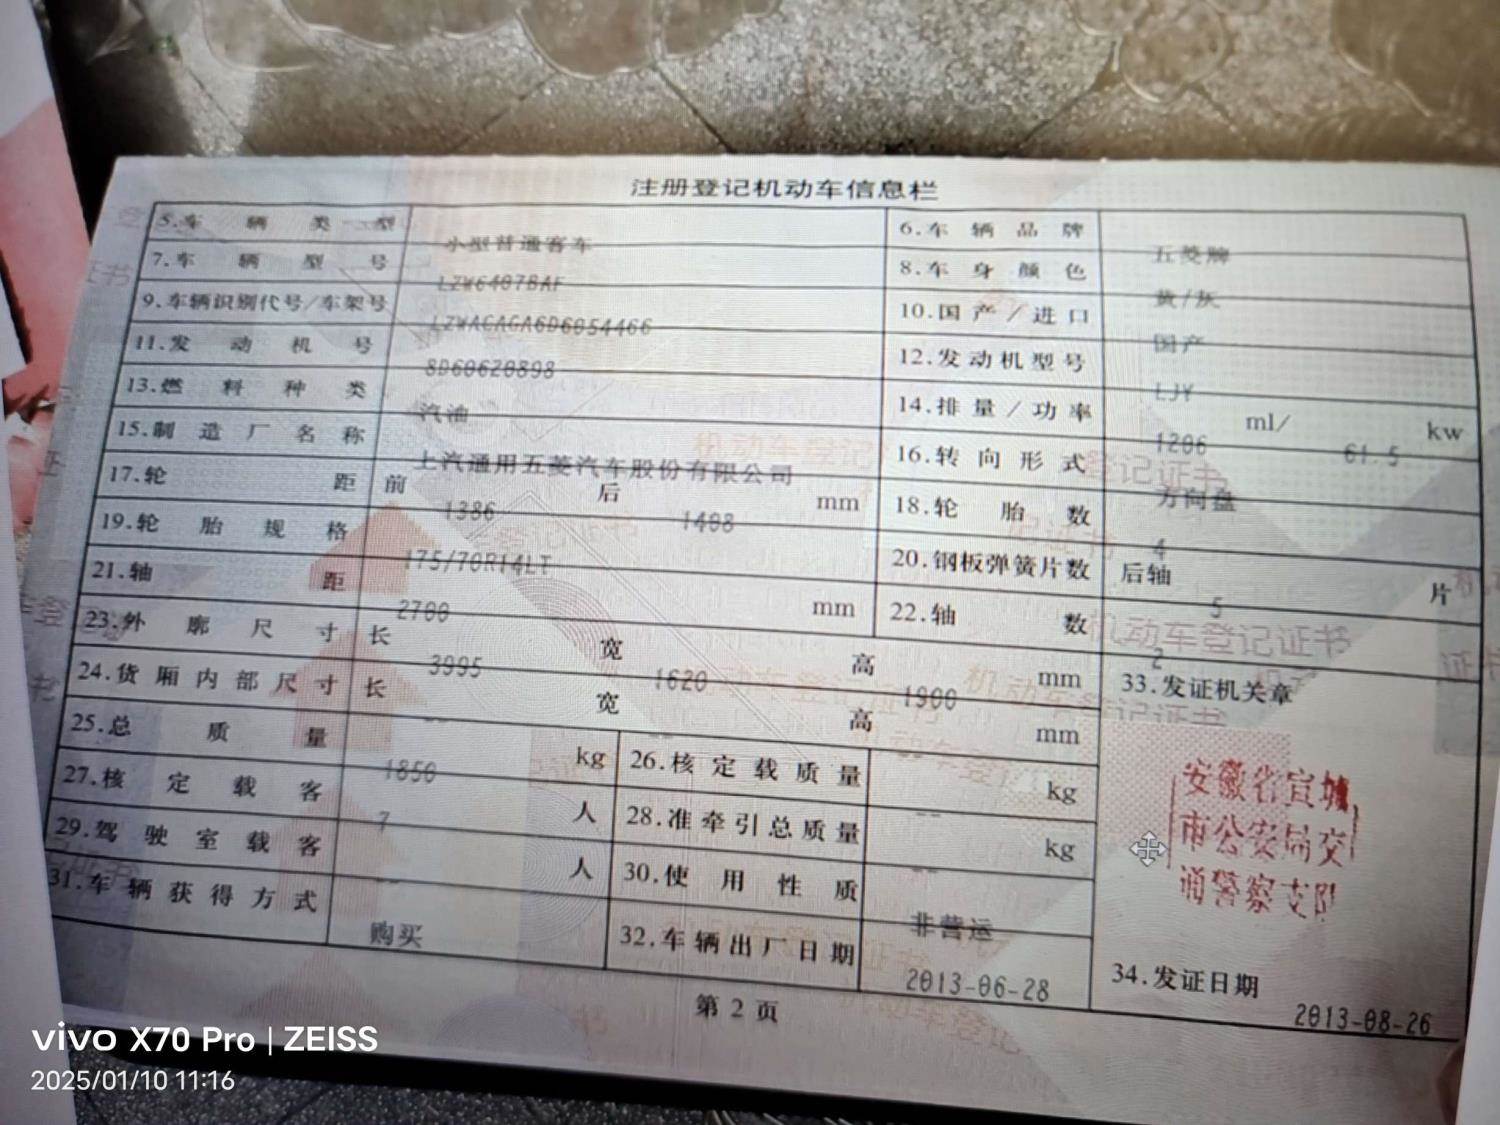 注册登记机动车信息栏
5.车辆类型 小型普通客车 6.车辆品牌 五菱牌
7.车辆型号 LZW6407BAF 8.车身颜色 黄/灰
9.车辆识别代号/车架号 LZWACAGA6D6054466 10.国产/进口 国产
11.发动机号 8D60620898 12.发动机型号 LJY
13.燃料种类 汽油 14.排量/功率 1206 ml/ 61.5 kw
15.制造厂名称 上汽通用五菱汽车股份有限公司 16.转向形式 方向盘
17.轮距 前 1386 后 1408 mm 18.轮胎数 4
19.轮胎规格 175/70R14LT 20.钢板弹簧片数 后轴 5 片
21.轴距 2700 mm 22.轴数 2
23.外廓尺寸 长 3995 宽 1620 高 1900 mm 33.发证机关章
24.货厢内部尺寸 长 -- 宽 高 mm
25.总质量 1850 kg 26.核定载质量 -- kg
27.核定载客 7 人 28.准牵引总质量 -- kg
29.驾驶室载客 -- 人 30.使用性质 非营运
31.车辆获得方式 购买 32.车辆出厂日期 2013-06-28 34.发证日期 2013-08-26
安徽省宣城
市公安局交
通警察支队
第2页
vivo X70 Pro | ZEISS
2025/01/10 11:16